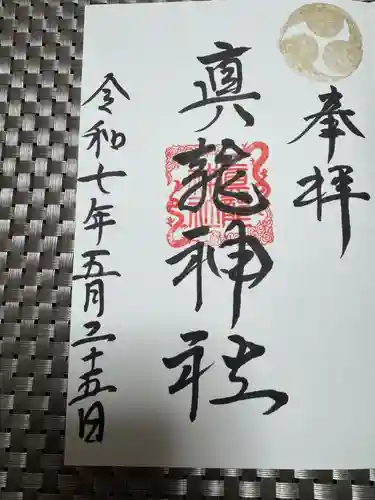 奉拝
眞龍神社
令和七年五月二十五日